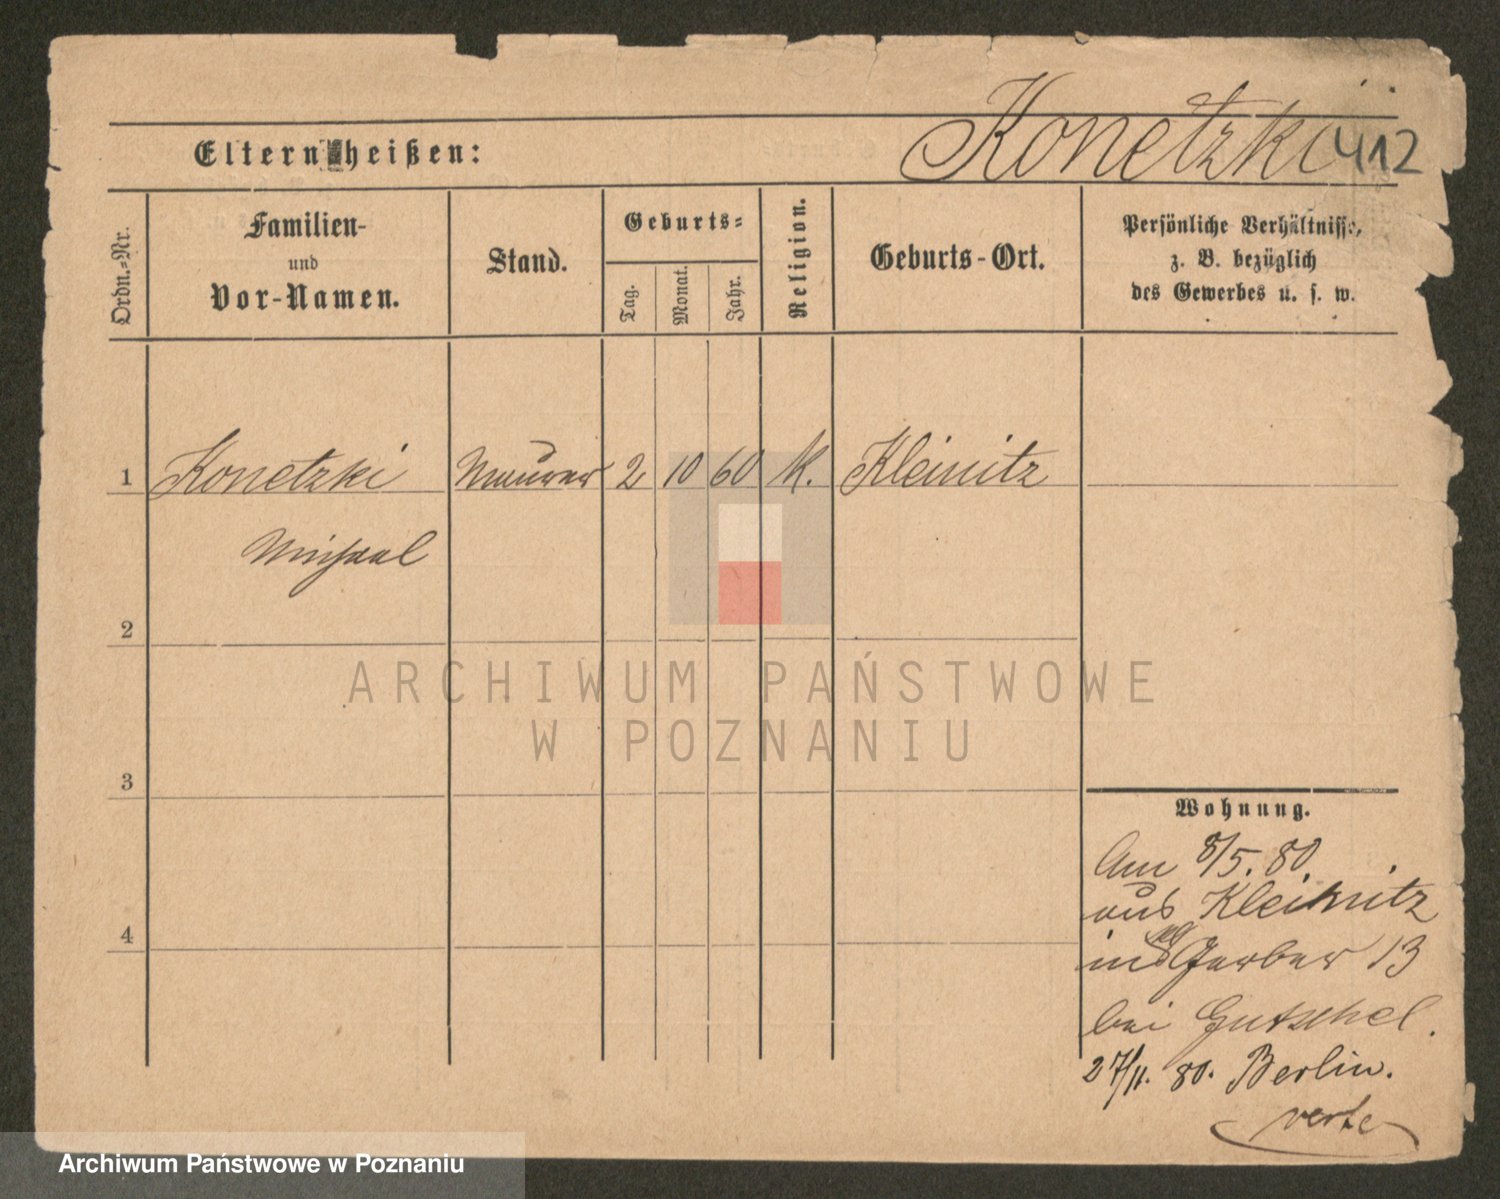 Konetzki 412
Eltern heißen:
Ordn.-Nr.
Familien-
und
Vor-Namen.
Stand.
Geburts-
Tag.
Monat.
Jahr.
Religion.
Geburts-Ort.
Persönliche Verhältnisse,
z. B. bezüglich
des Gewerbes u. s. w.
1 Konetzki Maurer 2 10 60 K. Kleinitz
Michael
2
3
4
ARCHIWUM PAŃSTWOWE
W POZNANIU
Wohnung.
Am 8/5. 80.
aus Kleinitz
in Gerber 13
bei Gutschel.
27/11. 80. Berlin.
verte
Archiwum Państwowe w Poznaniu